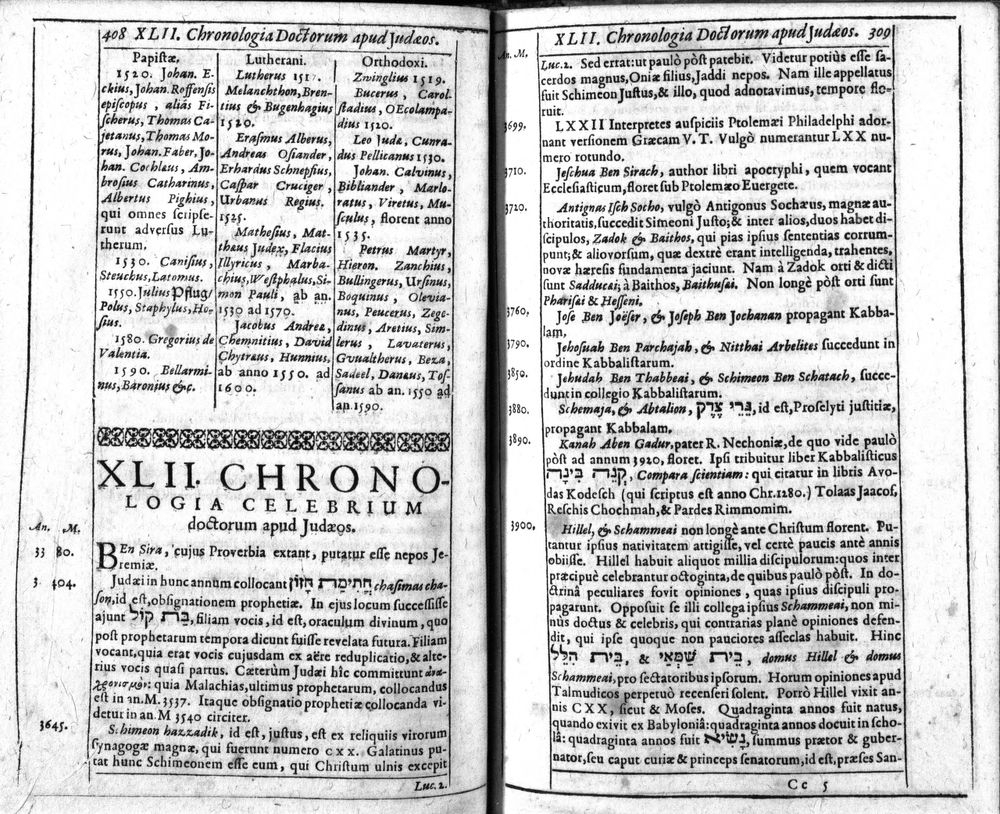 408 XLII. Chronologia Doctorum apud Judæos.
Papistæ.
1520. Johan. E-
ckius, Johan. Roffensis
episcopus, aliás Fi-
scherus, Thomas Ca-
jetanus, Thomas Mo-
rus, Johan. Faber, Jo-
han. Cochlæus, Am-
brosius Catharinus,
Albertus Pighius,
qui omnes scripse-
runt adversus Lu-
therum.
1530. Canisius,
Steuchus, Latomus.
1550. Julius Pflug/
Polus, Staphylus, Ho-
sius.
1580. Gregorius de
Valentia.
1590. Bellarmi-
nus, Baronius &c.
Lutherani.
Lutherus 1517.
Melanchthon, Bren-
tius & Bugenhagius
1520.
Erasmus Alberus,
Andreas Osiander,
Erhardus Schnepfius,
Caspar Cruciger,
Urbanus Regius.
1525.
Mathesius, Mat-
thæus Judex, Flacius
Illyricus, Marba-
chius, Westphalus, Si-
mon Pauli, ab an.
1530 ad 1570.
Jacobus Andreæ,
Chemnitius, David
Chytræus, Hunnius,
ab anno 1550. ad
1600.
Orthodoxi.
Zwinglius 1519.
Bucerus, Carol.
stadius, OEcolampa-
dius 1520.
Leo Judæ, Cunra-
dus Pellicanus 1530.
Johan. Calvinus,
Bibliander, Marlo-
ratus, Viretus, Mu-
sculus, florent anno
1535.
Petrus Martyr,
Hieron. Zanchius,
Bullingerus, Ursinus,
Boquinus, Olevia-
nus, Peucerus, Zege-
dinus, Aretius, Sim-
lerus, Lavaterus,
Gvualtherus, Beza,
Sadeel, Danæus, Tos-
sanus ab an. 1550 ad
an. 1590.
XLII. CHRONO-
LOGIA CELEBRIUM
doctorum apud Judæos.
An. M.
33 80.
BEn Sira, cujus Proverbia extant, putatur esse nepos Je-
remiæ.
3. 404.
Judæi in hunc annum collocant חתימת חזון chasimas cha-
son, id est, obsignationem prophetiæ. In ejus locum successisse
ajunt בת קול, filiam vocis, id est, oraculum divinum, quo
post prophetarum tempora dicunt fuisse revelata futura. Filiam
vocant, quia erat vocis cujusdam ex aëre reduplicatio, & alte-
rius vocis quasi partus. Cæterùm Judæi hîc committunt ἀνα-
χρονισμόν: quia Malachias, ultimus prophetarum, collocandus
est in an. M. 3537. Itaque obsignatio prophetiæ collocanda vi-
detur in an. M 3540 circiter.
3645.
Schimeon hazzadik, id est, justus, est ex reliquiis virorum
synagogæ magnæ, qui fuerunt numero CXX. Galatinus pu-
tat hunc Schimeonem esse eum, qui Christum ulnis excepit
Luc. 2.
XLII. Chronologia Doctorum apud Judæos. 309
An. M.
Luc. 2. Sed errat: ut paulò pòst patebit. Videtur potiùs esse sa-
cerdos magnus, Oniæ filius, Jaddi nepos. Nam ille appellatus
fuit Schimeon Justus, & illo, quod adnotavimus, tempore flo-
ruit.
3699.
LXXII Interpretes auspiciis Ptolemæi Philadelphi ador-
nant versionem Græcam V. T. Vulgò numerantur LXX nu-
mero rotundo.
3710.
Jeschua Ben Sirach, author libri apocryphi, quem vocant
Ecclesiasticum, floret sub Ptolemæo Euergete.
3720.
Antignas Isch Socho, vulgò Antigonus Sochæus, magnæ au-
thoritatis, succedit Simeoni Justo; & inter alios, duos habet di-
scipulos, Zadok & Baithos, qui pias ipsius sententias corrum-
punt; & aliovorsum, quæ dextrè erant intelligenda, trahentes,
novæ hæresis fundamenta jaciunt. Nam à Zadok orti & dicti
sunt Sadducæi; à Baithos, Baithusæi. Non longè pòst orti sunt
Pharisæi & Hesseni.
3760.
Jose Ben Joëser, & Joseph Ben Jochanan propagant Kabba-
lam.
3790.
Jehosuah Ben Parchajah, & Nitthai Arbelites succedunt in
ordine Kabbalistarum.
3850.
Jehudah Ben Thabbeai, & Schimeon Ben Schatach, succe-
dunt in collegio Kabbalistarum.
3880.
Schemaja, & Abtalion, גרי צדק, id est, Proselyti justitiæ,
propagant Kabbalam.
3890.
Kanah Aben Gadur, pater R. Nechoniæ, de quo vide paulò
pòst ad annum 3920, floret. Ipsi tribuitur liber Kabbalisticus
קנה בינה, Compara scientiam: qui citatur in libris Avo-
das Kodesch (qui scriptus est anno Chr. 1280.) Tolaas Jaacos,
Reschis Chochmah, & Pardes Rimmomim.
3900.
Hillel, & Schammeai non longè ante Christum florent. Pu-
tantur ipsius nativitatem attigisse, vel certè paucis antè annis
obiisse. Hillel habuit aliquot millia discipulorum: quos inter
præcipuè celebrantur octoginta, de quibus paulò pòst. In do-
ctrinâ peculiares fovit opiniones, quas ipsius discipuli pro-
pagarunt. Opposuit se illi collega ipsius Schammeai, non mi-
nus doctus & celebris, qui contrarias planè opiniones defen-
dit, qui ipse quoque non pauciores asseclas habuit. Hinc
בית שמאי, & בית הלל, domus Hillel & domus
Schammeai, pro sectatoribus ipsorum. Horum opiniones apud
Talmudicos perpetuò recenseri solent. Porrò Hillel vixit an-
nis CXX, sicut & Moses. Quadraginta annos fuit natus,
quando exivit ex Babyloniâ: quadraginta annos docuit in scho-
lâ: quadraginta annos fuit נשיא, summus prætor & guber-
nator, seu caput curiæ & princeps senatorum, id est, præses San-
Cc 5